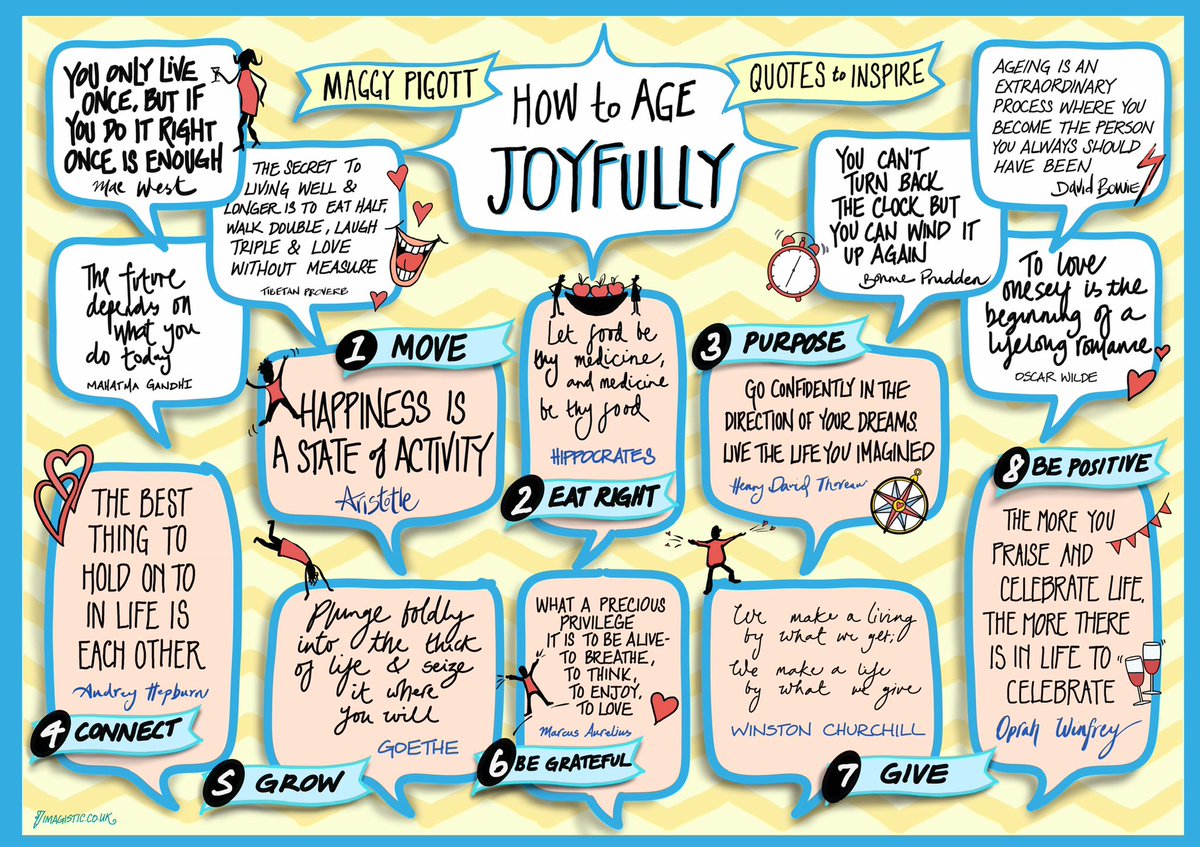 MAGGY PIGOTT
HOW to AGE
JOYFULLY
QUOTES to INSPIRE
YOU ONLY LIVE
ONCE, BUT IF
YOU DO IT RIGHT
ONCE IS ENOUGH
Mae West
THE SECRET TO
LIVING WELL &
LONGER IS TO EAT HALF,
WALK DOUBLE, LAUGH
TRIPLE & LOVE
WITHOUT MEASURE
TIBETAN PROVERB
The future
depends on
what you
do today
MAHATMA GANDHI
YOU CAN'T
TURN BACK
THE CLOCK BUT
YOU CAN WIND IT
UP AGAIN
Bonnie Prudden
AGEING IS AN
EXTRAORDINARY
PROCESS WHERE YOU
BECOME THE PERSON
YOU ALWAYS SHOULD
HAVE BEEN
David Bowie
To love
oneself is the
beginning of a
lifelong romance
OSCAR WILDE
1 MOVE
HAPPINESS IS
A STATE of ACTIVITY
Aristotle
Let food be
thy medicine,
and medicine
be thy food
HIPPOCRATES
2 EAT RIGHT
3 PURPOSE
GO CONFIDENTLY IN THE
DIRECTION OF YOUR DREAMS.
LIVE THE LIFE YOU IMAGINED
Henry David Thoreau
THE BEST
THING TO
HOLD ON TO
IN LIFE IS
EACH OTHER
Audrey Hepburn
4 CONNECT
Plunge boldly
into the thick
of life & seize
it where
you will
GOETHE
5 GROW
WHAT A PRECIOUS
PRIVILEGE
IT IS TO BE ALIVE-
TO BREATHE,
TO THINK,
TO ENJOY,
TO LOVE
Marcus Aurelius
6 BE GRATEFUL
We make a living
by what we get;
We make a life
by what we give
WINSTON CHURCHILL
7 GIVE
8 BE POSITIVE
THE MORE YOU
PRAISE AND
CELEBRATE LIFE,
THE MORE THERE
IS IN LIFE TO
CELEBRATE
Oprah Winfrey
IMAGISTIC.CO.UK